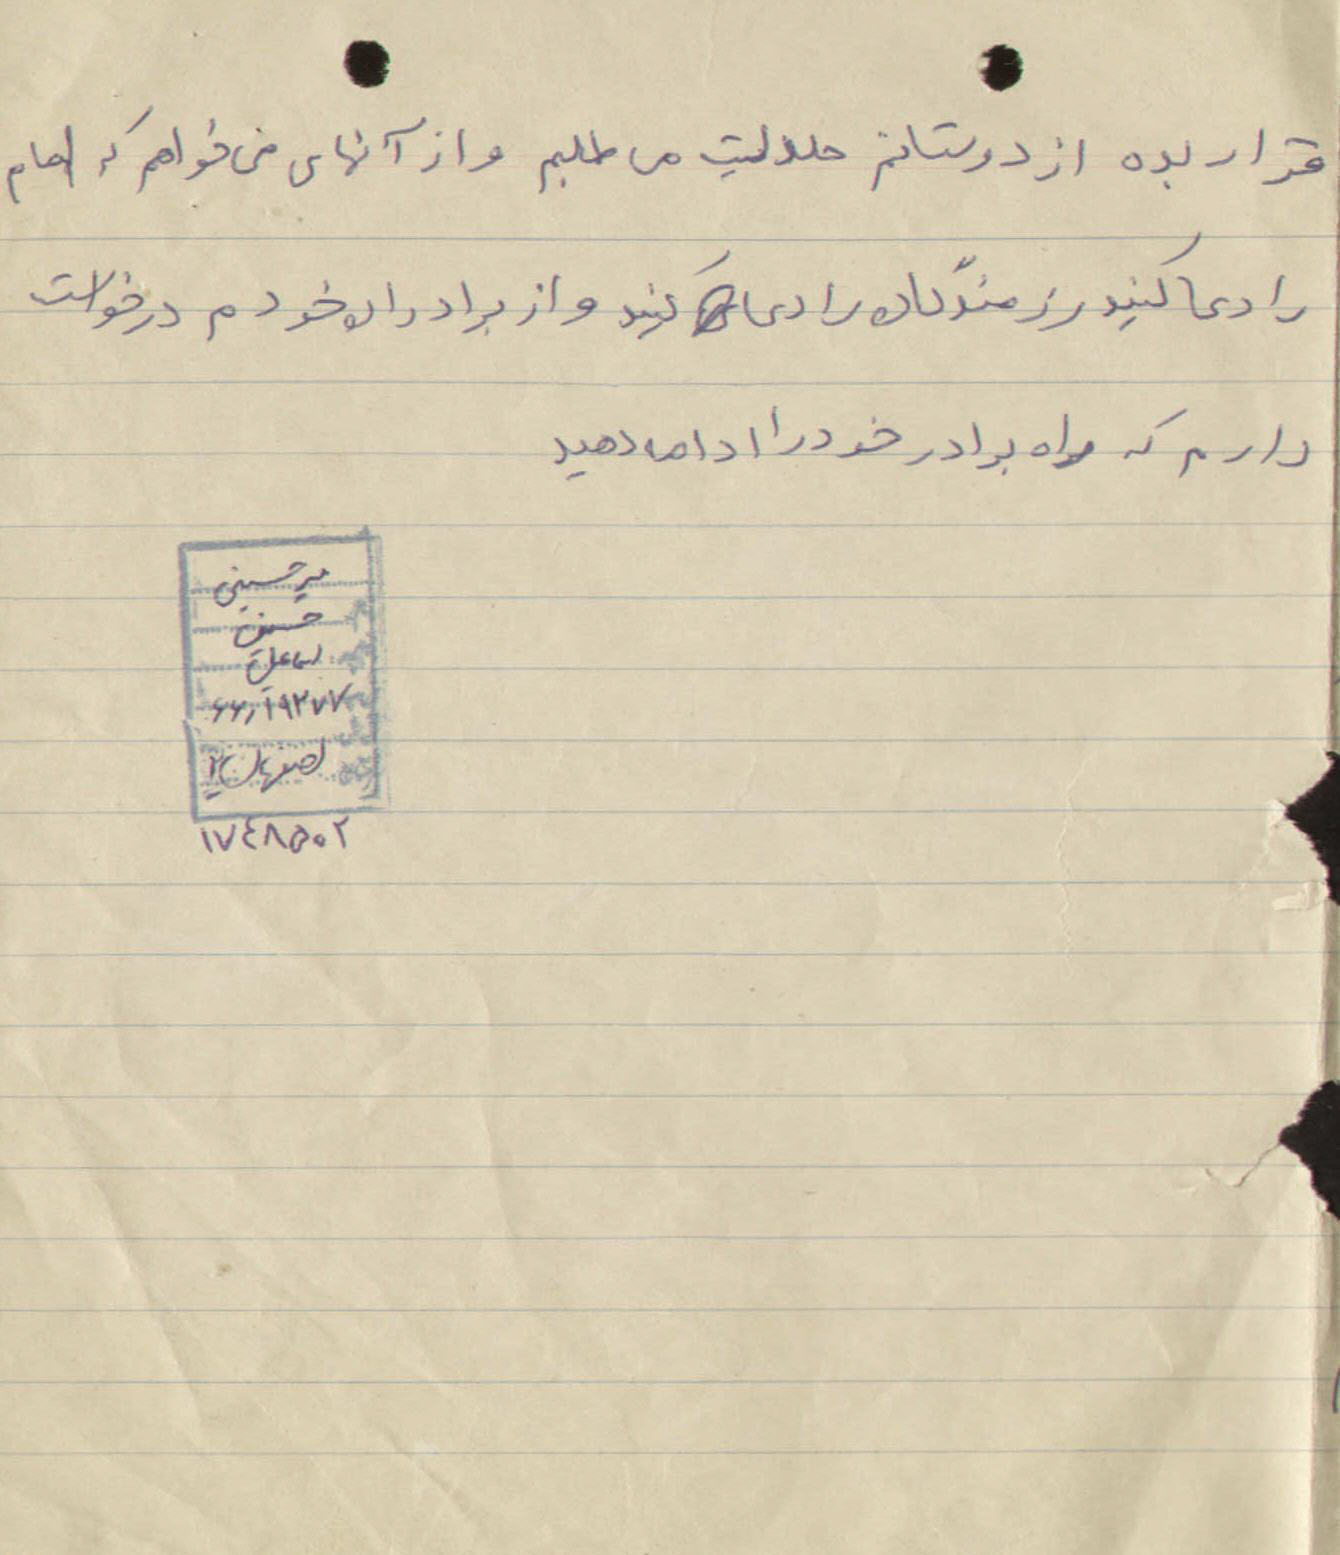 قرار بده از دوستانم حلالیت می طلبم و از آنهای می خواهم که امام
را دعا کنید رزمندگان را دعا کنید و از برادران خودم درخواست
دارم که راه برادر خود را ادامه دهید
میرحسینی
حسین
اسماعیل
۶۶٫۱۹۲۷۷
اصفهان ۲
۱۷۴۸۵۰۲